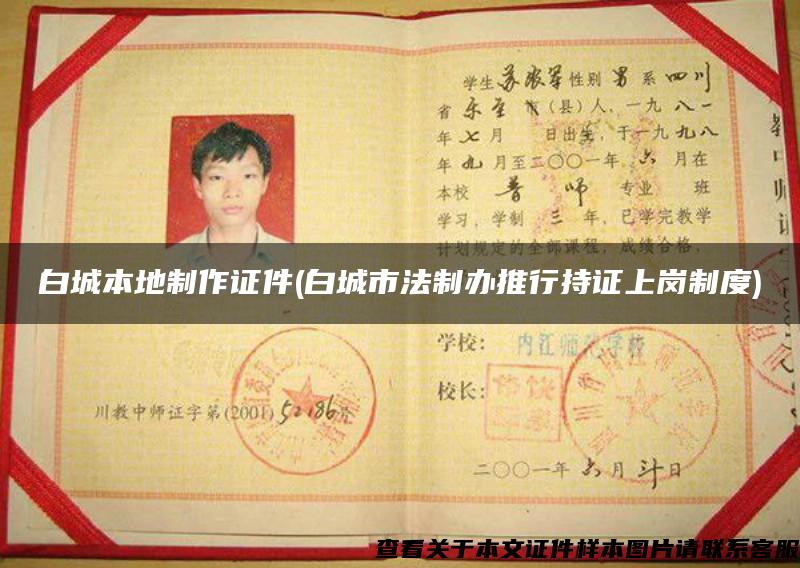 学生 苏农军 性别 男 系 四川
省 乐至 市(县)人,一九八一
年 七 月 日出生,于一九九八
年 九 月至二〇〇一年 六 月在
本校 普师 专业 班
学习,学制 三 年,已学完教学
计划规定的全部课程,成绩合格,
白城本地制作证件(白城市法制办推行持证上岗制度)
学校: 内江师范学校
校长:
川教中师证字第(2001)52186号
二〇〇一年 六 月 廿 日
查看关于本文证件样本图片请联系客服